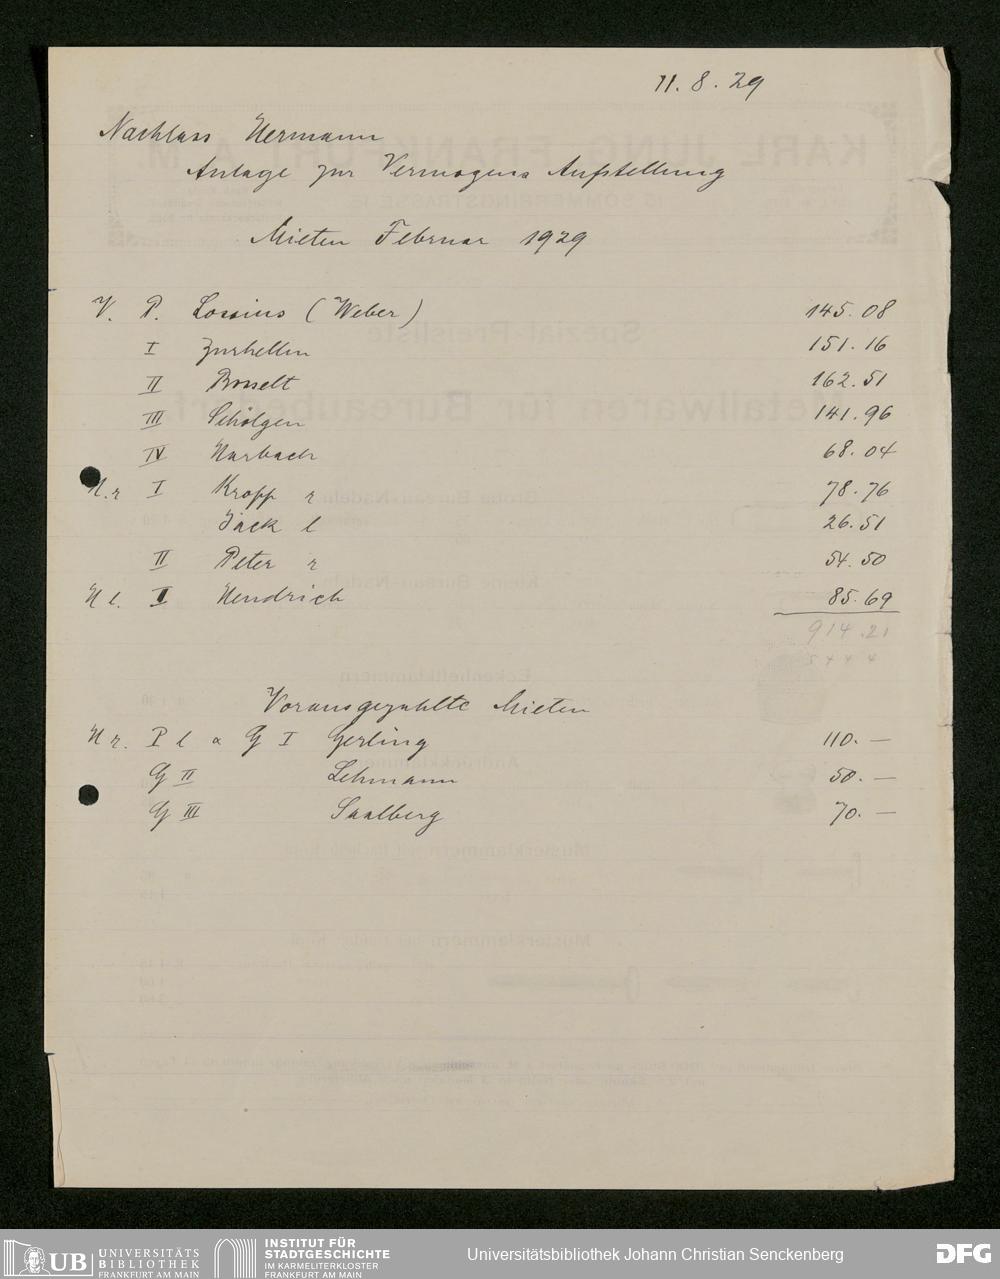 11. 8. 29
Nachlass Hermann
Anlage zur Vermögens Aufstellung
Mieten Februar 1929
V. P. Lossius (Weber) 145.08
I Zurhellen 151.16
II Posselt 162.51
III Schölgen 141.96
IV Harbach 68.04
H.r I Kropp r 78.76
Jäck l 26.51
II Peter r 54.50
H l. I Hendrich 85.69
914.21
Vorausgezahlte Mieten
H r. P l & G I Gerling 110.—
G II Lehmann 50.—
G III Saalberg 70.—
KARL JUNG, FRANKFURT A. M.
Spezial-Preisliste
Metallwaren für Bureaubedarf
Kleine Bureau-Nadeln
Eckenheftklammern
Musterklammern
Musterklammern
UB UNIVERSITÄTS
BIBLIOTHEK
FRANKFURT AM MAIN
INSTITUT FÜR
STADTGESCHICHTE
IM KARMELITERKLOSTER
FRANKFURT AM MAIN
Universitätsbibliothek Johann Christian Senckenberg
DFG